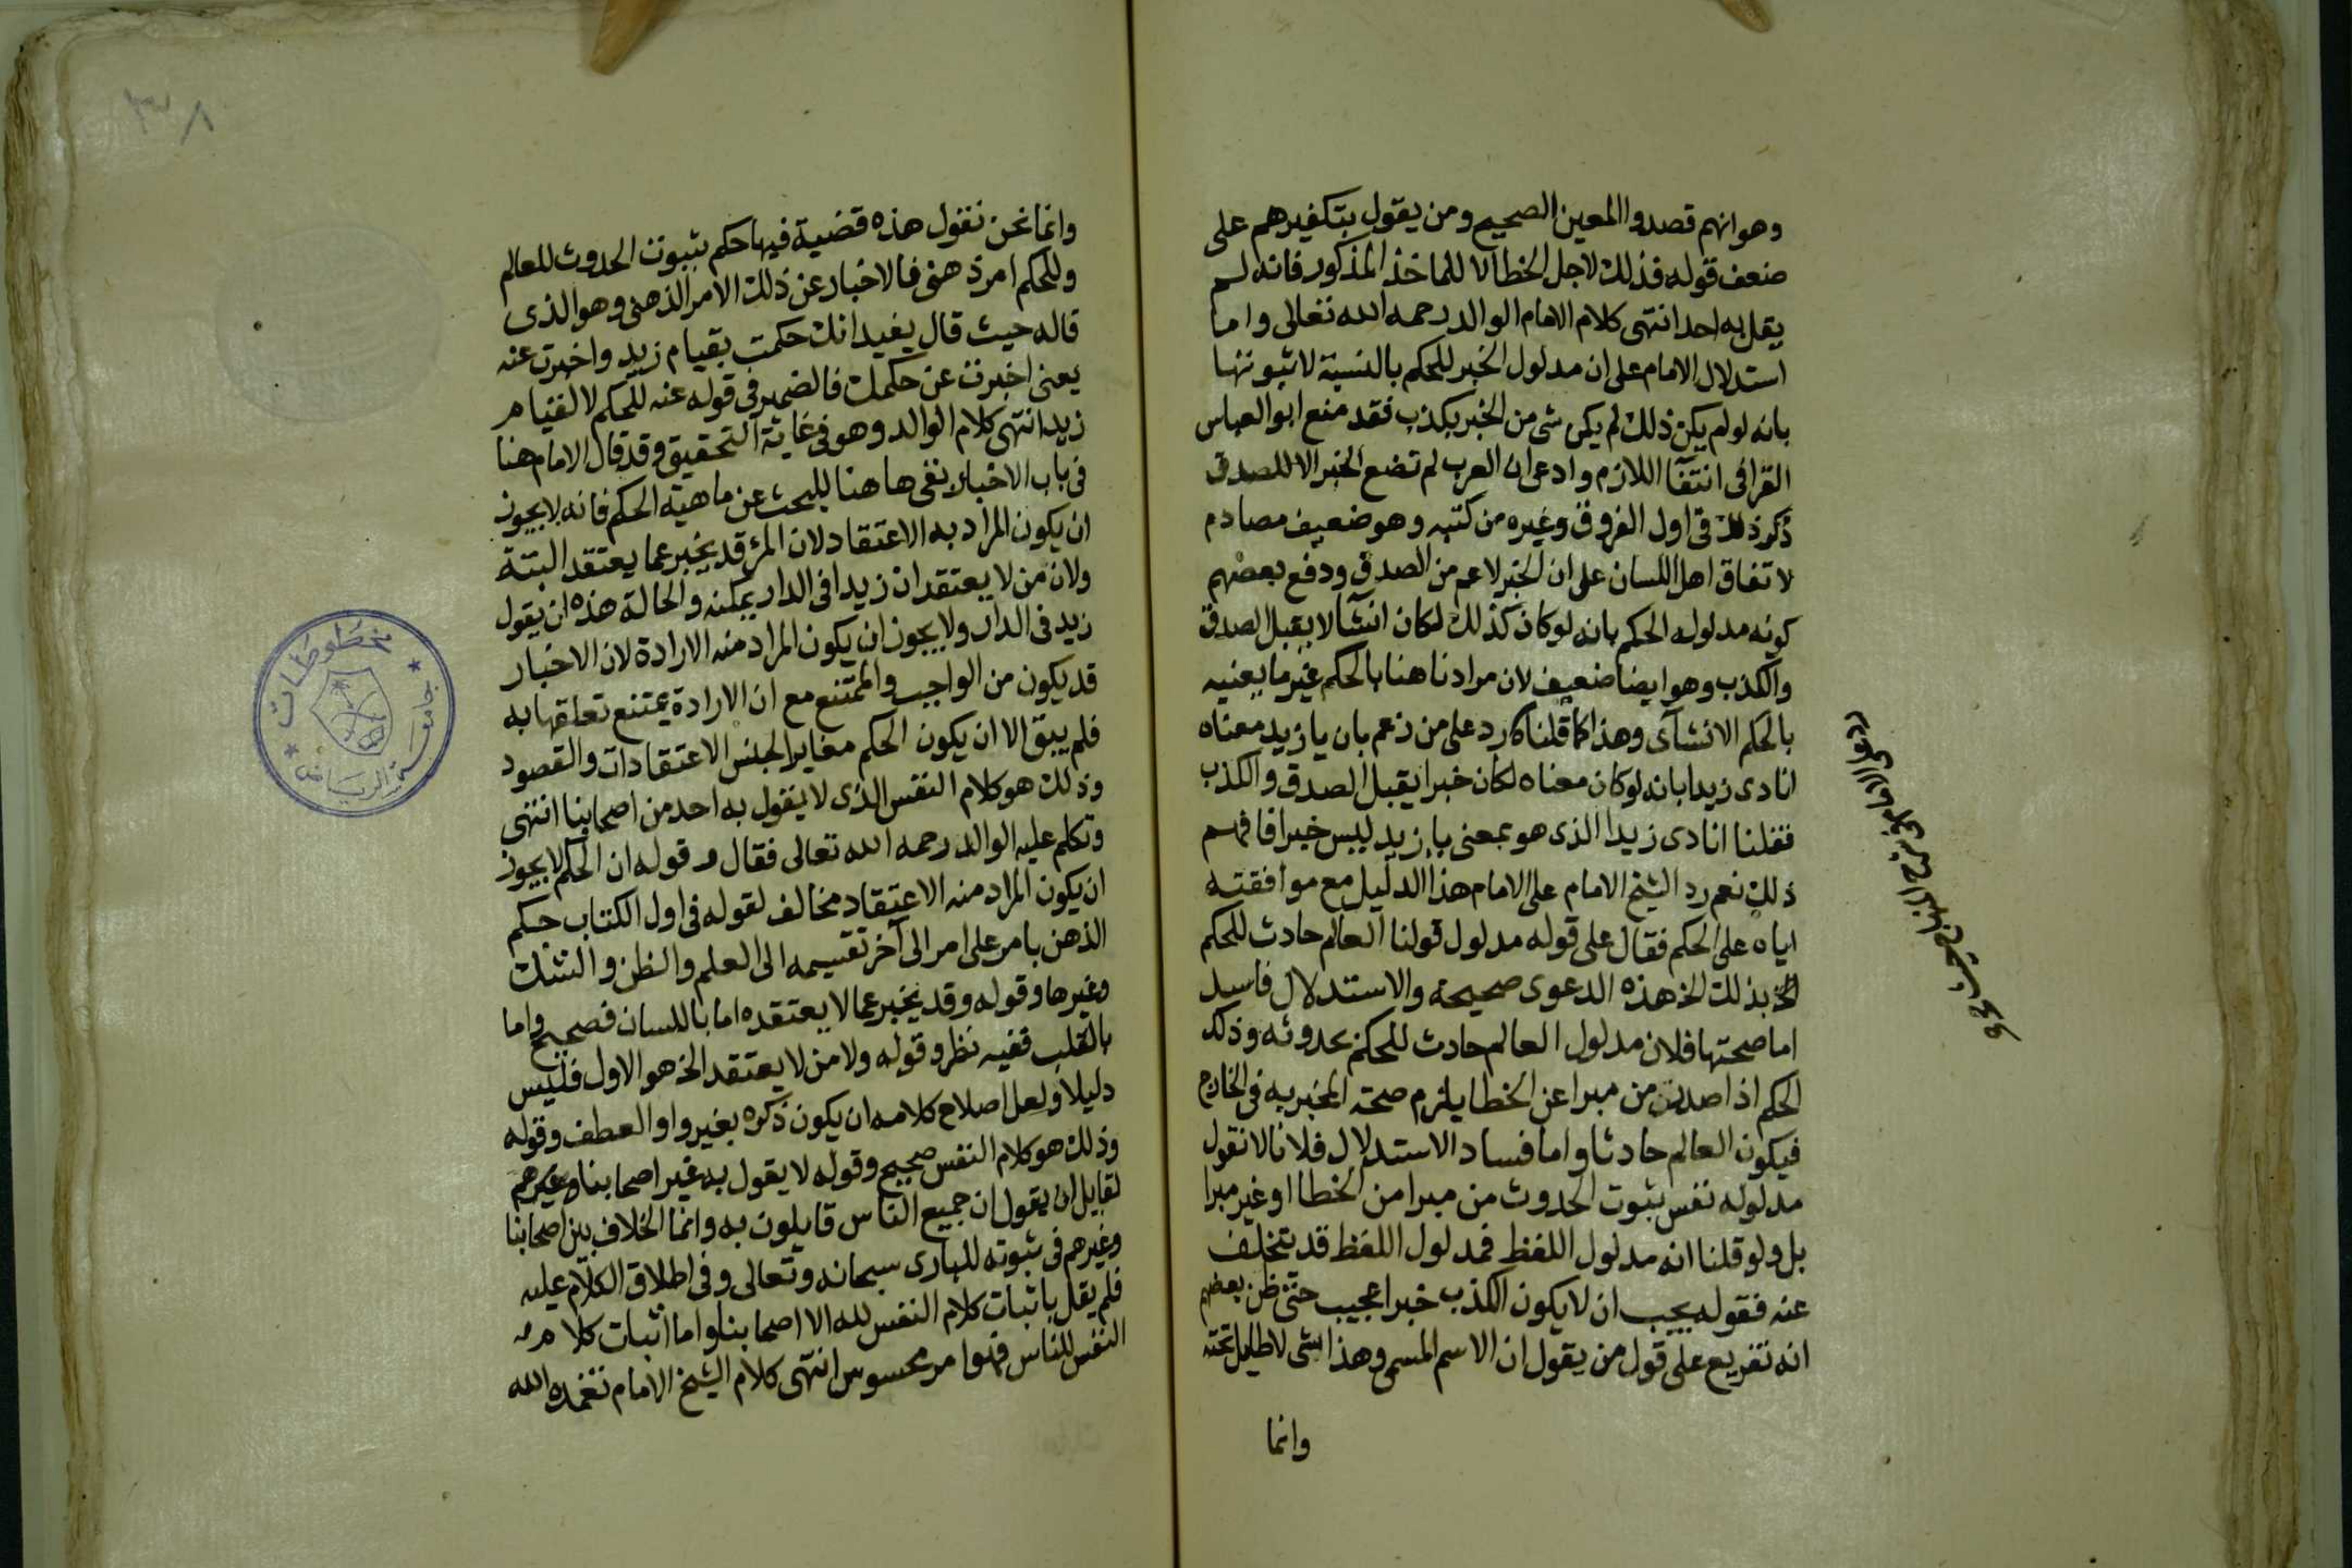 وهو انهم قصدوا المعين الصحيح ومن يقول بتكفيرهم على
ضعف قوله فذلك لاجل الخطا لا للماخذ المذكور فانه لم
يقل به احد انتهى كلام الامام الوالد رحمه الله تعالى واما
استدلال الامام على ان مدلول الخبر للحكم بالنسبة لا ثبوتها
بانه لو لم يكن ذلك لم يكن شى من الخبر بكذب فقد منع ابو العباس
القرافى انتفآ اللازم وادعى ان العرب لم تضع الخبر الا للصدق
ذكر ذلك فى اول الفروق وغيره من كتبه وهو ضعيف مصادم
لاتفاق اهل اللسان على ان الخبر لاعم من الصدق ودفع بعضهم
كونه مدلوله الحكم بانه لو كان كذلك لكان انشآ لا يقبل الصدق
والكذب وهو ايضا ضعيف لان مرادنا هنا بالحكم غير ما يعنيه
بالحكم الانشآى وهذا كما قلنا كا رد على من زعم بان يا زيد معناه
انادى زيدا بانه لو كان معناه لكان خبرا يقبل الصدق والكذب
فقلنا انادى زيدا الذى هو بمعنى يا زيد ليس خبرا فافهم
ذلك نعم رد الشيخ الامام على الامام هذا الدليل مع موافقته
اياه على الحكم فقال على قوله مدلول قولنا العالم حادث للحكم
بذلك الخ هذه الدعوى صحيحة والاستدلال فاسد
اما صحتها فلان مدلول العالم حادث للحكم بحدوثه وذلك
الحكم اذا صدر من مبرا عن الخطا يلزم صحة المخبر به فى الخارج
فيكون العالم حادثا واما فساد الاستدلال فلانا لا نقول
مدلوله نفس ثبوت الحدوث من مبرا من الخطا او غير مبرا
بل ولو قلنا انه مدلول اللفظ فمدلول اللفظ قد يتخلف
عنه فقوله يجب ان لا يكون الكذب خبرا عجيب حتى ظن بعضهم
انه تفريع على قول من يقول ان الاسم المسمى وهذا شى لا طايل تحته
وانما
وانما نحن نقول هذه قضية فيها حكم بثبوت الحدوث للعالم
وللحكم امر ذهنى فالاخبار عن ذلك الامر الذهنى وهو الذى
قاله حيث قال يفيد انك حكمت بقيام زيد واخبرت عنه
يعنى اخبرت عن حكمك فالضمير فى قوله عنه للحكم لا لقيام
زيد انتهى كلام الوالد وهو فى غاية التحقيق وقد قال الامام هنا
فى باب الاخبار نفى ها هنا للبحث عن ماهية الحكم فانه لا يجوز
ان يكون المراد به الاعتقاد لان المرء قد يخبر عما يعتقد البتة
ولان من لا يعتقد ان زيدا فى الدار يمكنه والحالة هذه ان يقول
زيد فى الدار ولا يجوز ان يكون المراد منه الارادة لان الاخبار
قد يكون من الواجب والممتنع مع ان الارادة يمتنع تعلقها به
فلم يبق الا ان يكون الحكم مغايرا لجنس الاعتقادات والقصود
وذلك هو كلام النفس الذى لا يقول به احد من اصحابنا انتهى
وتكلم عليه الوالد رحمه الله تعالى فقال قوله ان الحكم لا يجوز
ان يكون المراد منه الاعتقاد مخالف لقوله فى اول الكتاب حكم
الذهن بامر على امر الى آخر تقسيمه الى العلم والظن والشك
وغيرها وقوله وقد يخبر عما لا يعتقده اما باللسان فصحيح واما
بالقلب ففيه نظر وقوله ولا من لا يعتقد الخ هو الاول فليس
دليلا ولعل اصلاح كلامه ان يكون ذكره بغير واو العطف وقوله
وذلك هو كلام النفس صحيح وقوله لا يقول به غير اصحابنا وغيرهم
لقايل ان يقول ان جميع الناس قايلون به وانما الخلاف بين اصحابنا
وغيرهم فى ثبوته للبارى سبحانه وتعالى وفى اطلاق الكلام عليه
فلم يقل باثبات كلام النفس لله الا اصحابنا واما اثبات كلام
النفس للناس فهو امر محسوس انتهى كلام الشيخ الامام تغمده الله
جامعة الرياض
مخطوطات